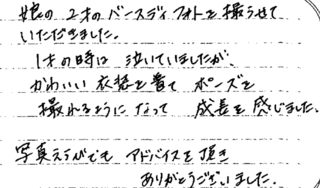 娘の2才のバースディフォトを撮らせて
いただきました。
1才の時は 泣いていましたが、
かわいい衣装を着て ポーズを
撮れるようになって 成長を感じました。
写真えらびでも アドバイスを頂き
ありがとうございました。